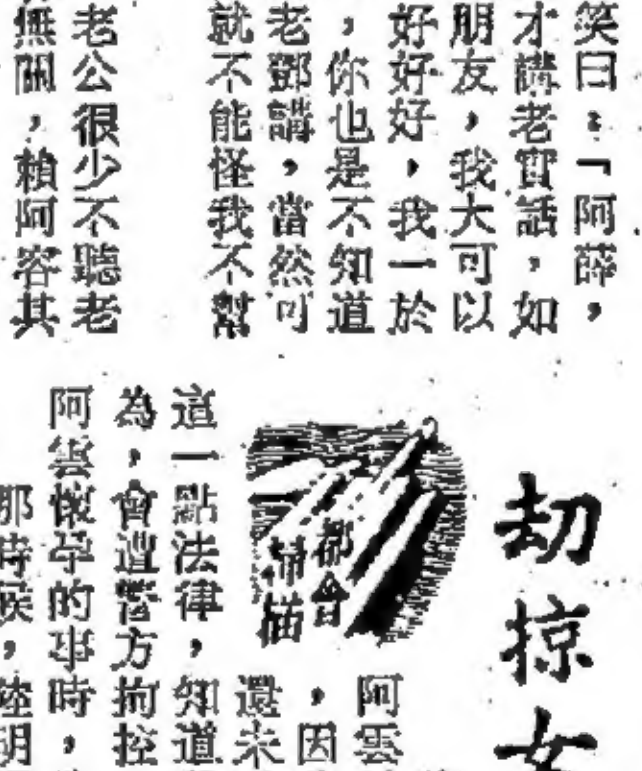 笑曰：「阿薛，
才講老實話，如
朋友，我大可以
好好好，我一於
，你也是不知道
老鄧講，當然可
就不能怪我不幫
老公很少不聽老
無關，賴阿容其
劫掠女
都會
掃描
阿雲
，因
還未
這一點法律，知道
為，會遭警方拘控
阿雲懷孕的事時，
那時候，陸明